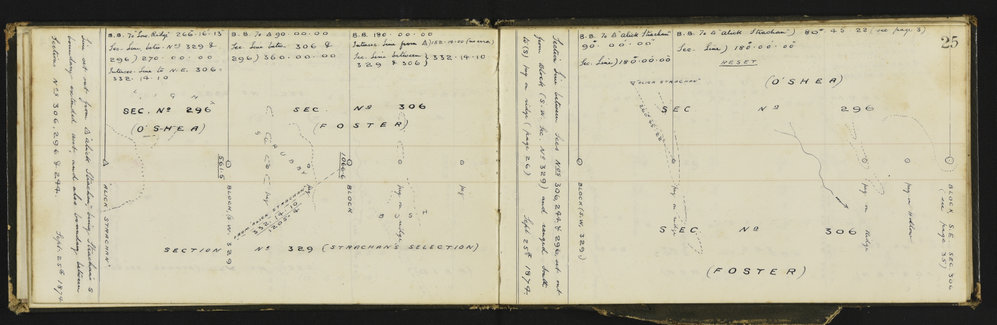 Line set out from Δ alick Strachan, being Strachan's S
boundary extended east, and also boundary between
Sections Nos 306, 296 & 294. Sept. 25th 1874.
B.B. To "Line, Ruby" 266·16·15
Sec. Line, betw. Nos 329 &
296) 270·00·00
Intersec. Line to N.E. 306.
332·14·10
B.B. To Δ 90·00·00
Sec. Line betw. 306 &
296) 360·00·00
B.B. 180·00·00
Intersec. Line from Δ) 152·14·10
Sec. Line between } 332·14·10
329 & 306)
SEC. No 296
(O'SHEA)
SEC. No 306
(FOSTER)
SCRUBBY
BUSH
561.5
1066.6
"ALICK STRACHAN"
BLOCK (S.W. 329)
Peg
FROM ALICK STRACHAN
332·14·10
1205.4
BLOCK
Peg on ridge
Peg
SECTION No 329 (STRACHAN'S SELECTION)
Section Line between Secs Nos 306, 294 & 296, set out
from Block (S.W. Sec. No 329) and ranged South
to (S) Peg on ridge (page 26) Sept. 25th 1874.
B.B. To Δ "alick Strachan"
90°·00·00
Sec. Line) 180·00·00
B.B. To Δ "alick Strachan") 80°·45·22 (see page 3)
Sec. Line) 180·00·00
RESET
25
"ALICK STRACHAN"
(O'SHEA)
SEC No 296
BLOCK (S.W. 329)
Peg on ridge
Peg on Ridge
Peg in Hollow
BLOCK S.E. SEC. 306
(see page 35)
SEC. No 306
(FOSTER)